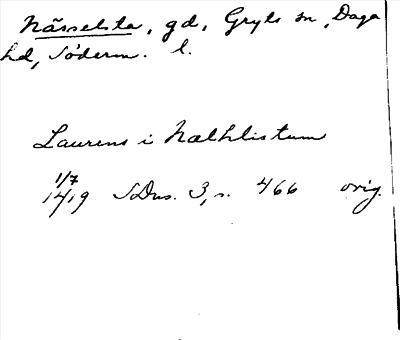 Nässelsta, gd, Gryts sn, Daga
hd, Söderm. l.
Laurens i Nælhlistum
1/7
1419 SDns. 3, s. 466 orig.